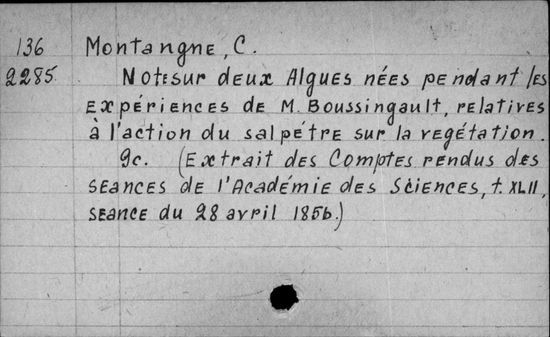 136 Montangne, C.
2285 Note sur deux Algues nées pendant les
Expériences de M. Boussingault, relatives
à l'action du salpêtre sur la vegétation.
9c. (Extrait des Comptes rendus des
séances de l'Académie des Sciences, t. XLII,
séance du 28 avril 1856.)